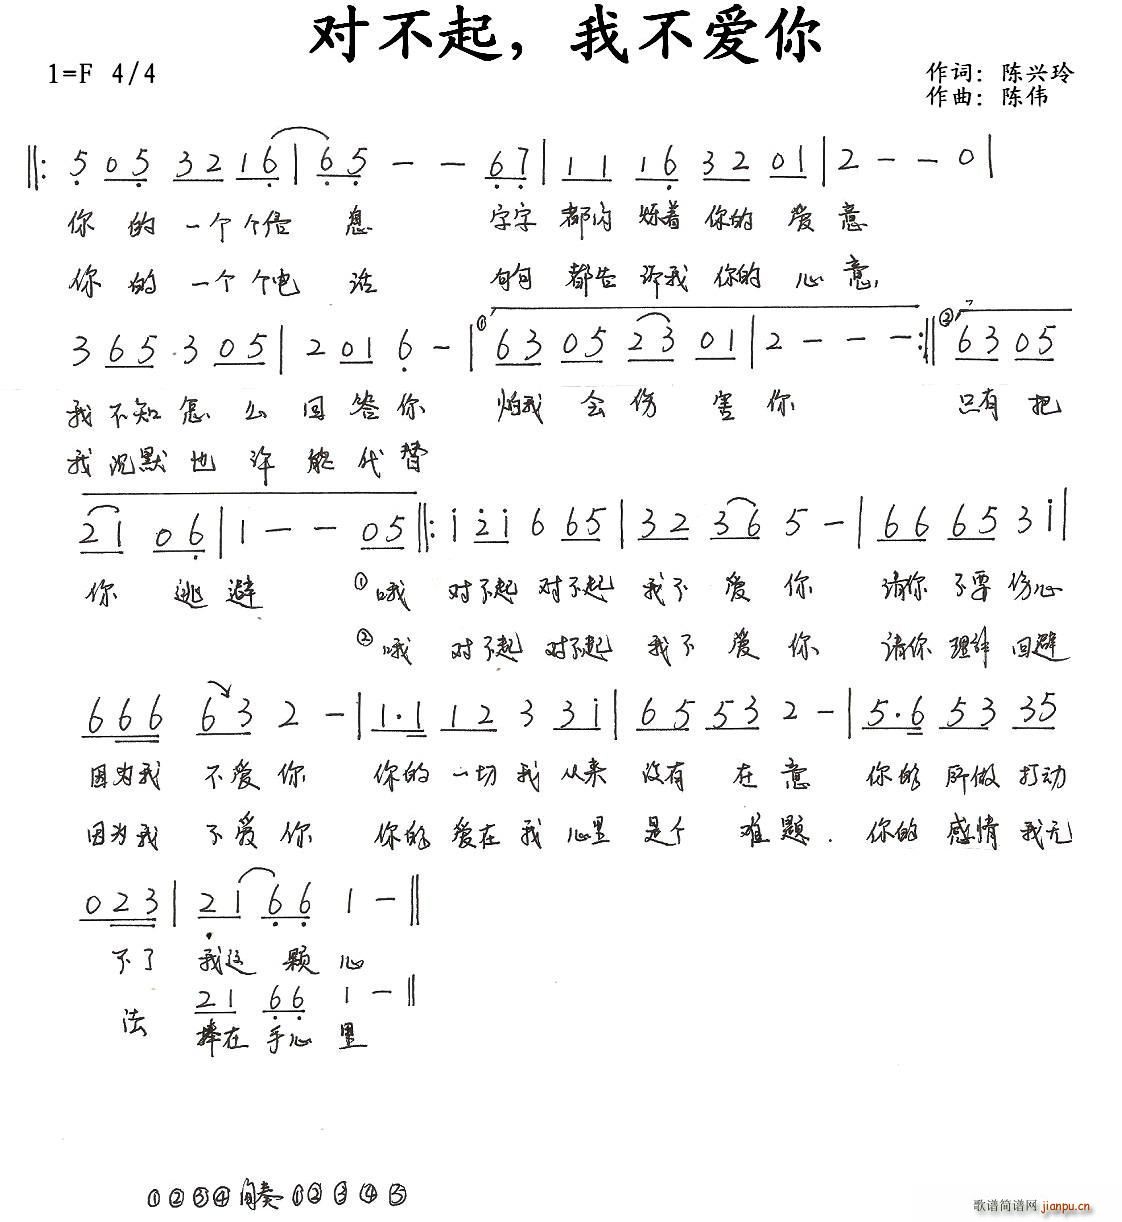 对不起，我不爱你
1=F 4/4
作词：陈兴玲
作曲：陈伟
‖: 5 05 32 16 | 65 - - 67 | 11 16 32 01 | 2 - - 0 |
你 的 一个 个信 息 字字 都闪 烁着 你的 爱 意
你 的 一个 个电 话 句句 都告 诉我 你的 心 意,
3 65 · 3 05 | 2 01 6 - | ① 63 05 23 01 | 2 - - - :‖ ② 63 05
我 不知 怎 么 回 答 你 怕我 会 伤 害 你 只有 把
我 沉默 也 许 能 代 替
21 06 | 1 - - 05 ‖: i 2i 6 65 | 32 36 5 - | 66 65 3i |
你 逃 避 ①哦 对不起 对不起 我不 爱 你 请你 不要 伤心
②哦 对不起 对不起 我不 爱 你 请你 理解 回避
666 63 2 - | 1·1 12 3 3i | 65 53 2 - | 5·6 53 35
因为我 不爱 你 你的 一切 我 从来 没有 在 意 你的 所做 打动
因为我 不爱 你 你的 爱在 我 心里 是个 难 题. 你的 感情 我无
023 | 21 66 1 - ‖
不了 我这 颗 心
21 66 1 - ‖
法 捧在 手心 里
①②③④间奏①②③④⑤
歌谱简谱网 jianpu.cn